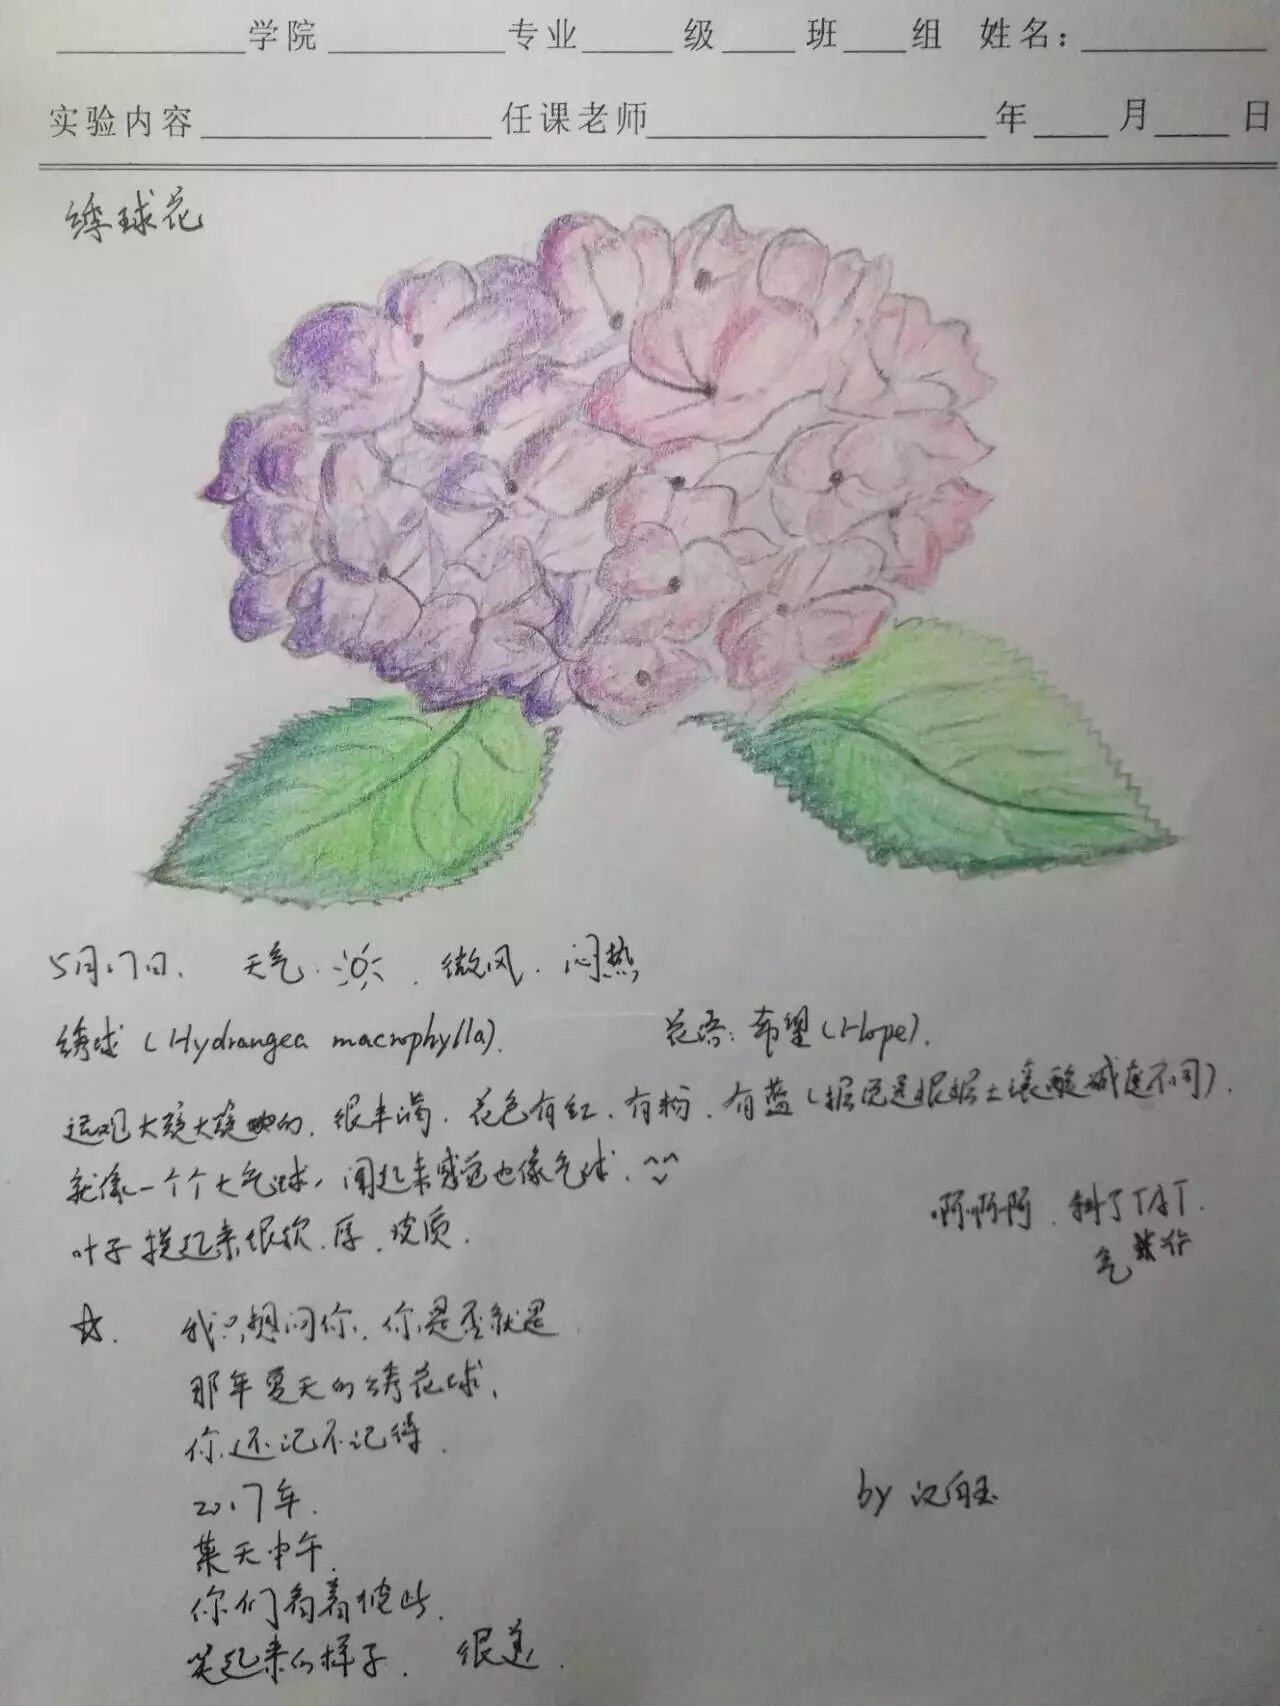 学院 专业 级 班 组 姓名:
实验内容 任课老师 年 月 日
绣球花
5月17日. 天气: 微风. 闷热
绣球 (Hydrangea macrophylla). 花语: 希望 (Hope).
远观大簇大簇的. 很丰满. 花色有红. 有粉. 有蓝 (据说是根据土壤酸碱度不同).
就像一个个大气球, 闻起来感觉也像气球. ^^
叶子摸起来很软. 厚. 皮质.
啊啊啊. TAT.
☆. 我只想问你. 你是否就是
那年夏天的绣花球.
你还记不记得.
2017年.
某天中午.
你们看着彼此.
笑起来的样子. 很美.
by